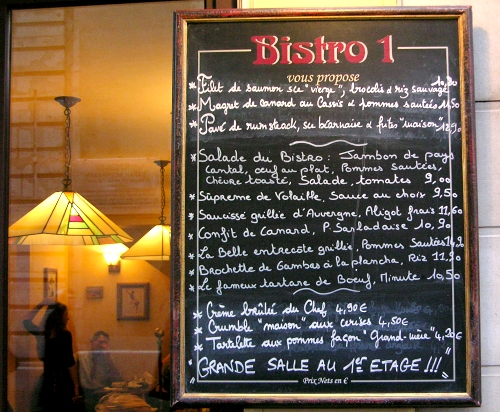 Bistro 1
vous propose
* Filet de saumon sce "vierge", brocolis & riz sauvage 10,90
* Magret de canard au Cassis & pommes sautées 11,50
* Pavé de rumsteack, sce béarnaise & frites "maison" 12,90
* Salade du Bistro : Jambon de pays
Cantal, œuf au plat, Pommes Sautées,
Chèvre toasté, Salade, tomates 9,00
* Suprême de Volaille, Sauce au choix 9,50
* Saucisse grillée d'Auvergne, Aligot frais 11,60
* Confit de Canard, P. Sarladaise 10,90
* La Belle entrecôte grillée Pommes Sautées 14,90
* Brochette de Gambas à la plancha, Riz 11,90
* Le fameux tartare de Bœuf, Minute 10,50
* Crème brûlée du Chef 4,90€
* Crumble "maison" aux cerises 4,50€
* Tartelette aux pommes façon "Grand-mère" 4,20€
"GRANDE SALLE AU 1er ETAGE !!!"
Prix Nets en €